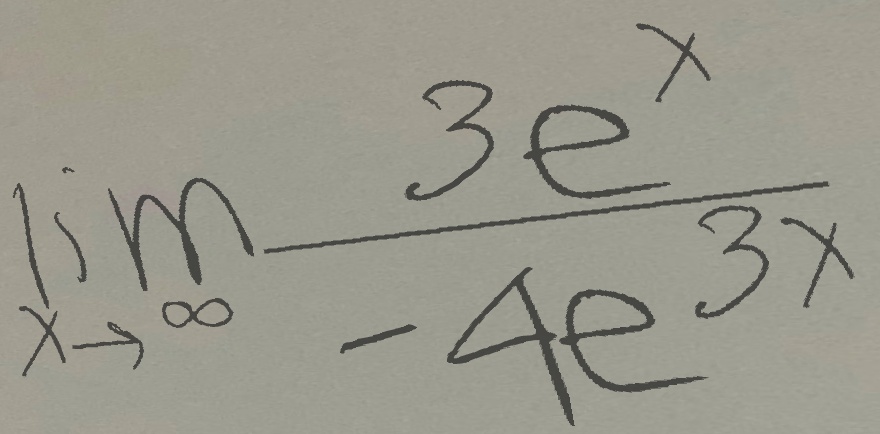 \lim_{x \to \infty} \frac{3e^{x}}{-4e^{3x}}